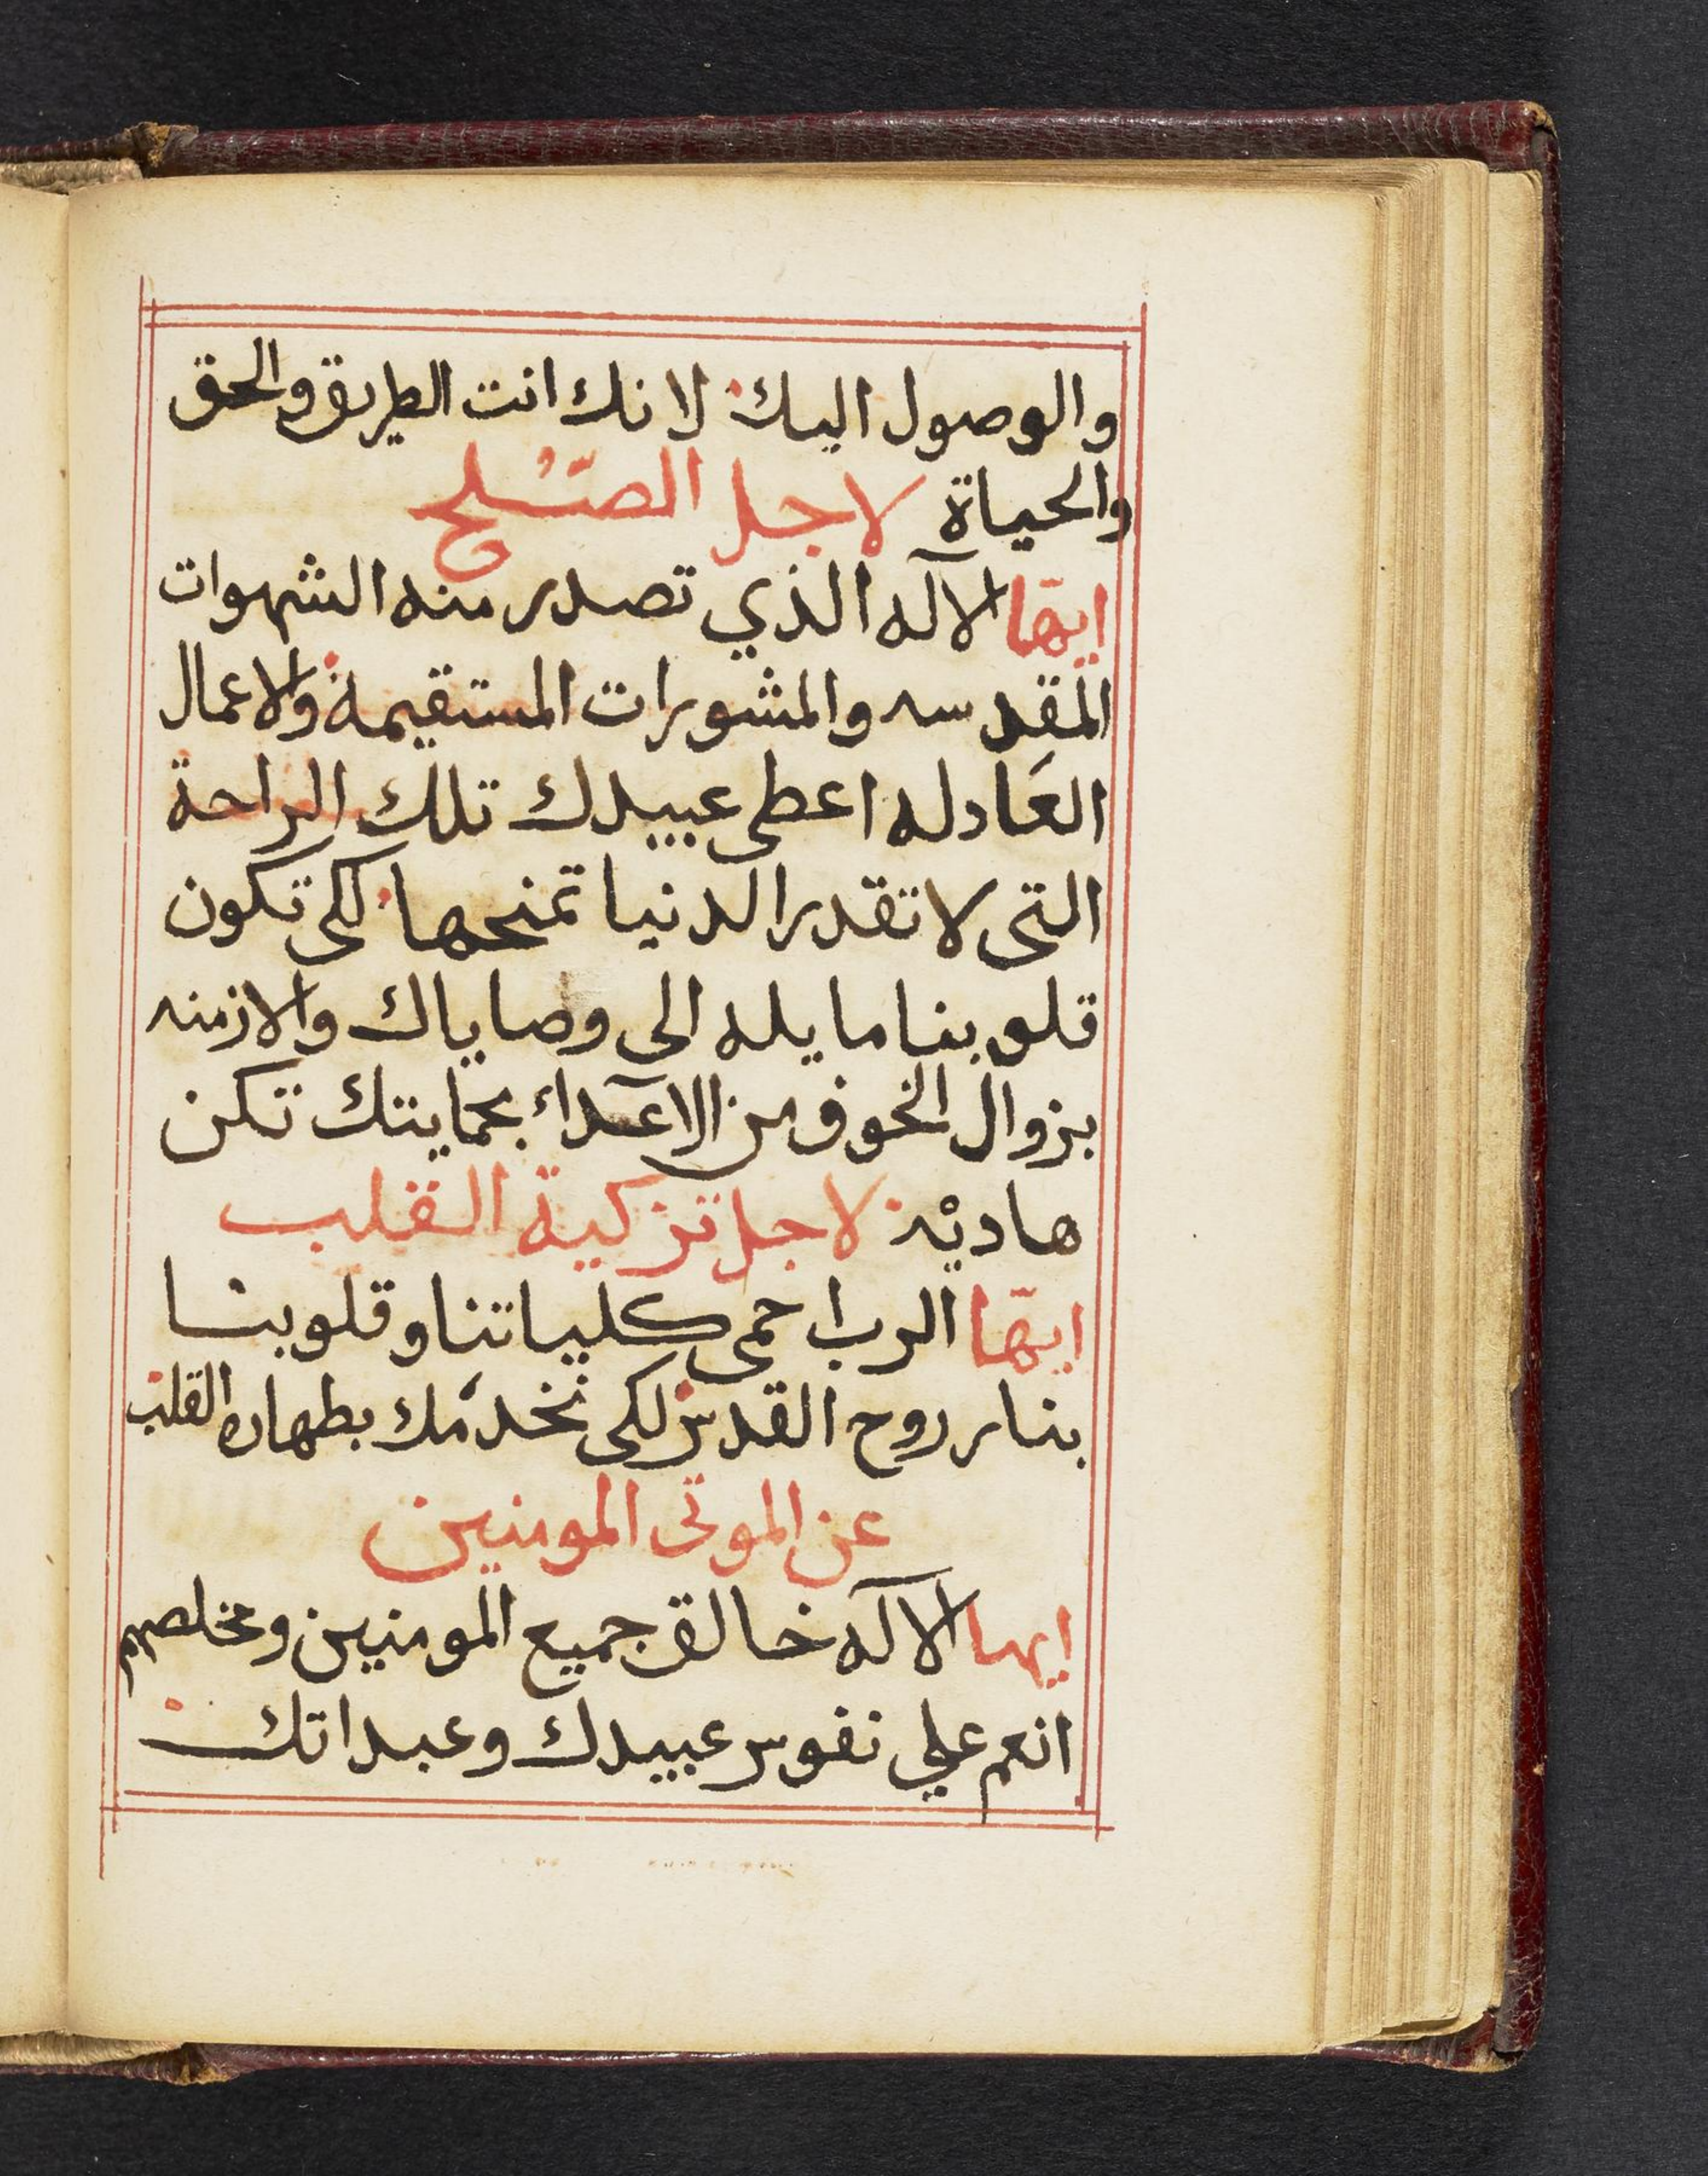 والوصول اليك لانك انت الطريق والحق
والحياة لاجل الصّلح
ايهّا الاله الذي تصدر منه الشهوات
المقدسه والمشورات المستقيمة والاعمال
العَادله اعطى عبيدك تلك الراحة
التى لا تقدر الدنيا تمنحها لكى تكون
قلوبنا مايله الى وصاياك والازمنه
بزوال الخوف من الاعداء بحمايتك تكن
هاديه لاجل تزكية القلب
ايهّا الرب احمى كلياتنا وقلوبنا
بنار روح القدس لكى نخدمك بطهاره القلب
عن الموتى المومنين
ايها الاله خالق جميع المومنين ومخلصهم
انعم علي نفوس عبيدك وعبداتك